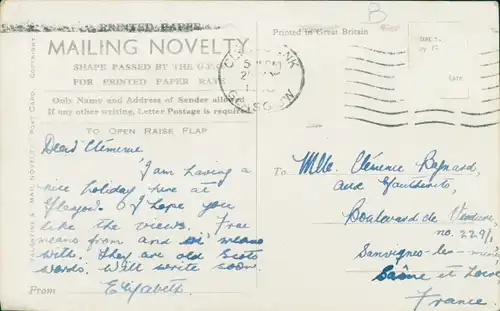 PRINTED PAPER
MAILING NOVELTY
SHAPE PASSED BY THE G.P.O.
FOR PRINTED PAPER RATE
Only Name and Address of Sender allowed
If any other writing, Letter Postage is required
TO OPEN RAISE FLAP
Dear Clémence
I am having a
nice holiday here at
Glasgow I hope you
like the views. Frae
means from and wi' means
with. They are old Scots
words. Will write soon.
From Elizabeth.
MAIL NOVELTY POST CARD. COPYRIGHT
Printed in Great Britain
B
GLASGOW
To Mlle. Clémence
Boulevard de Verdun,
no. 229/1
Sanvignes-les-mines
Saône et Loire
France.